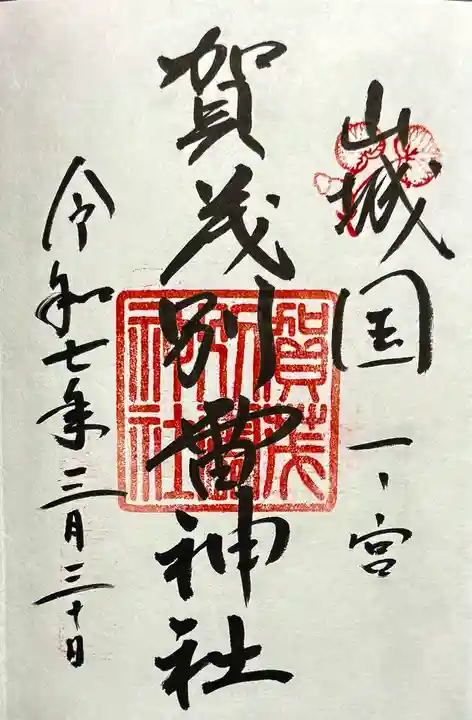 山城国一ノ宮
賀茂別雷神社
賀茂別雷神社
令和七年三月三十日